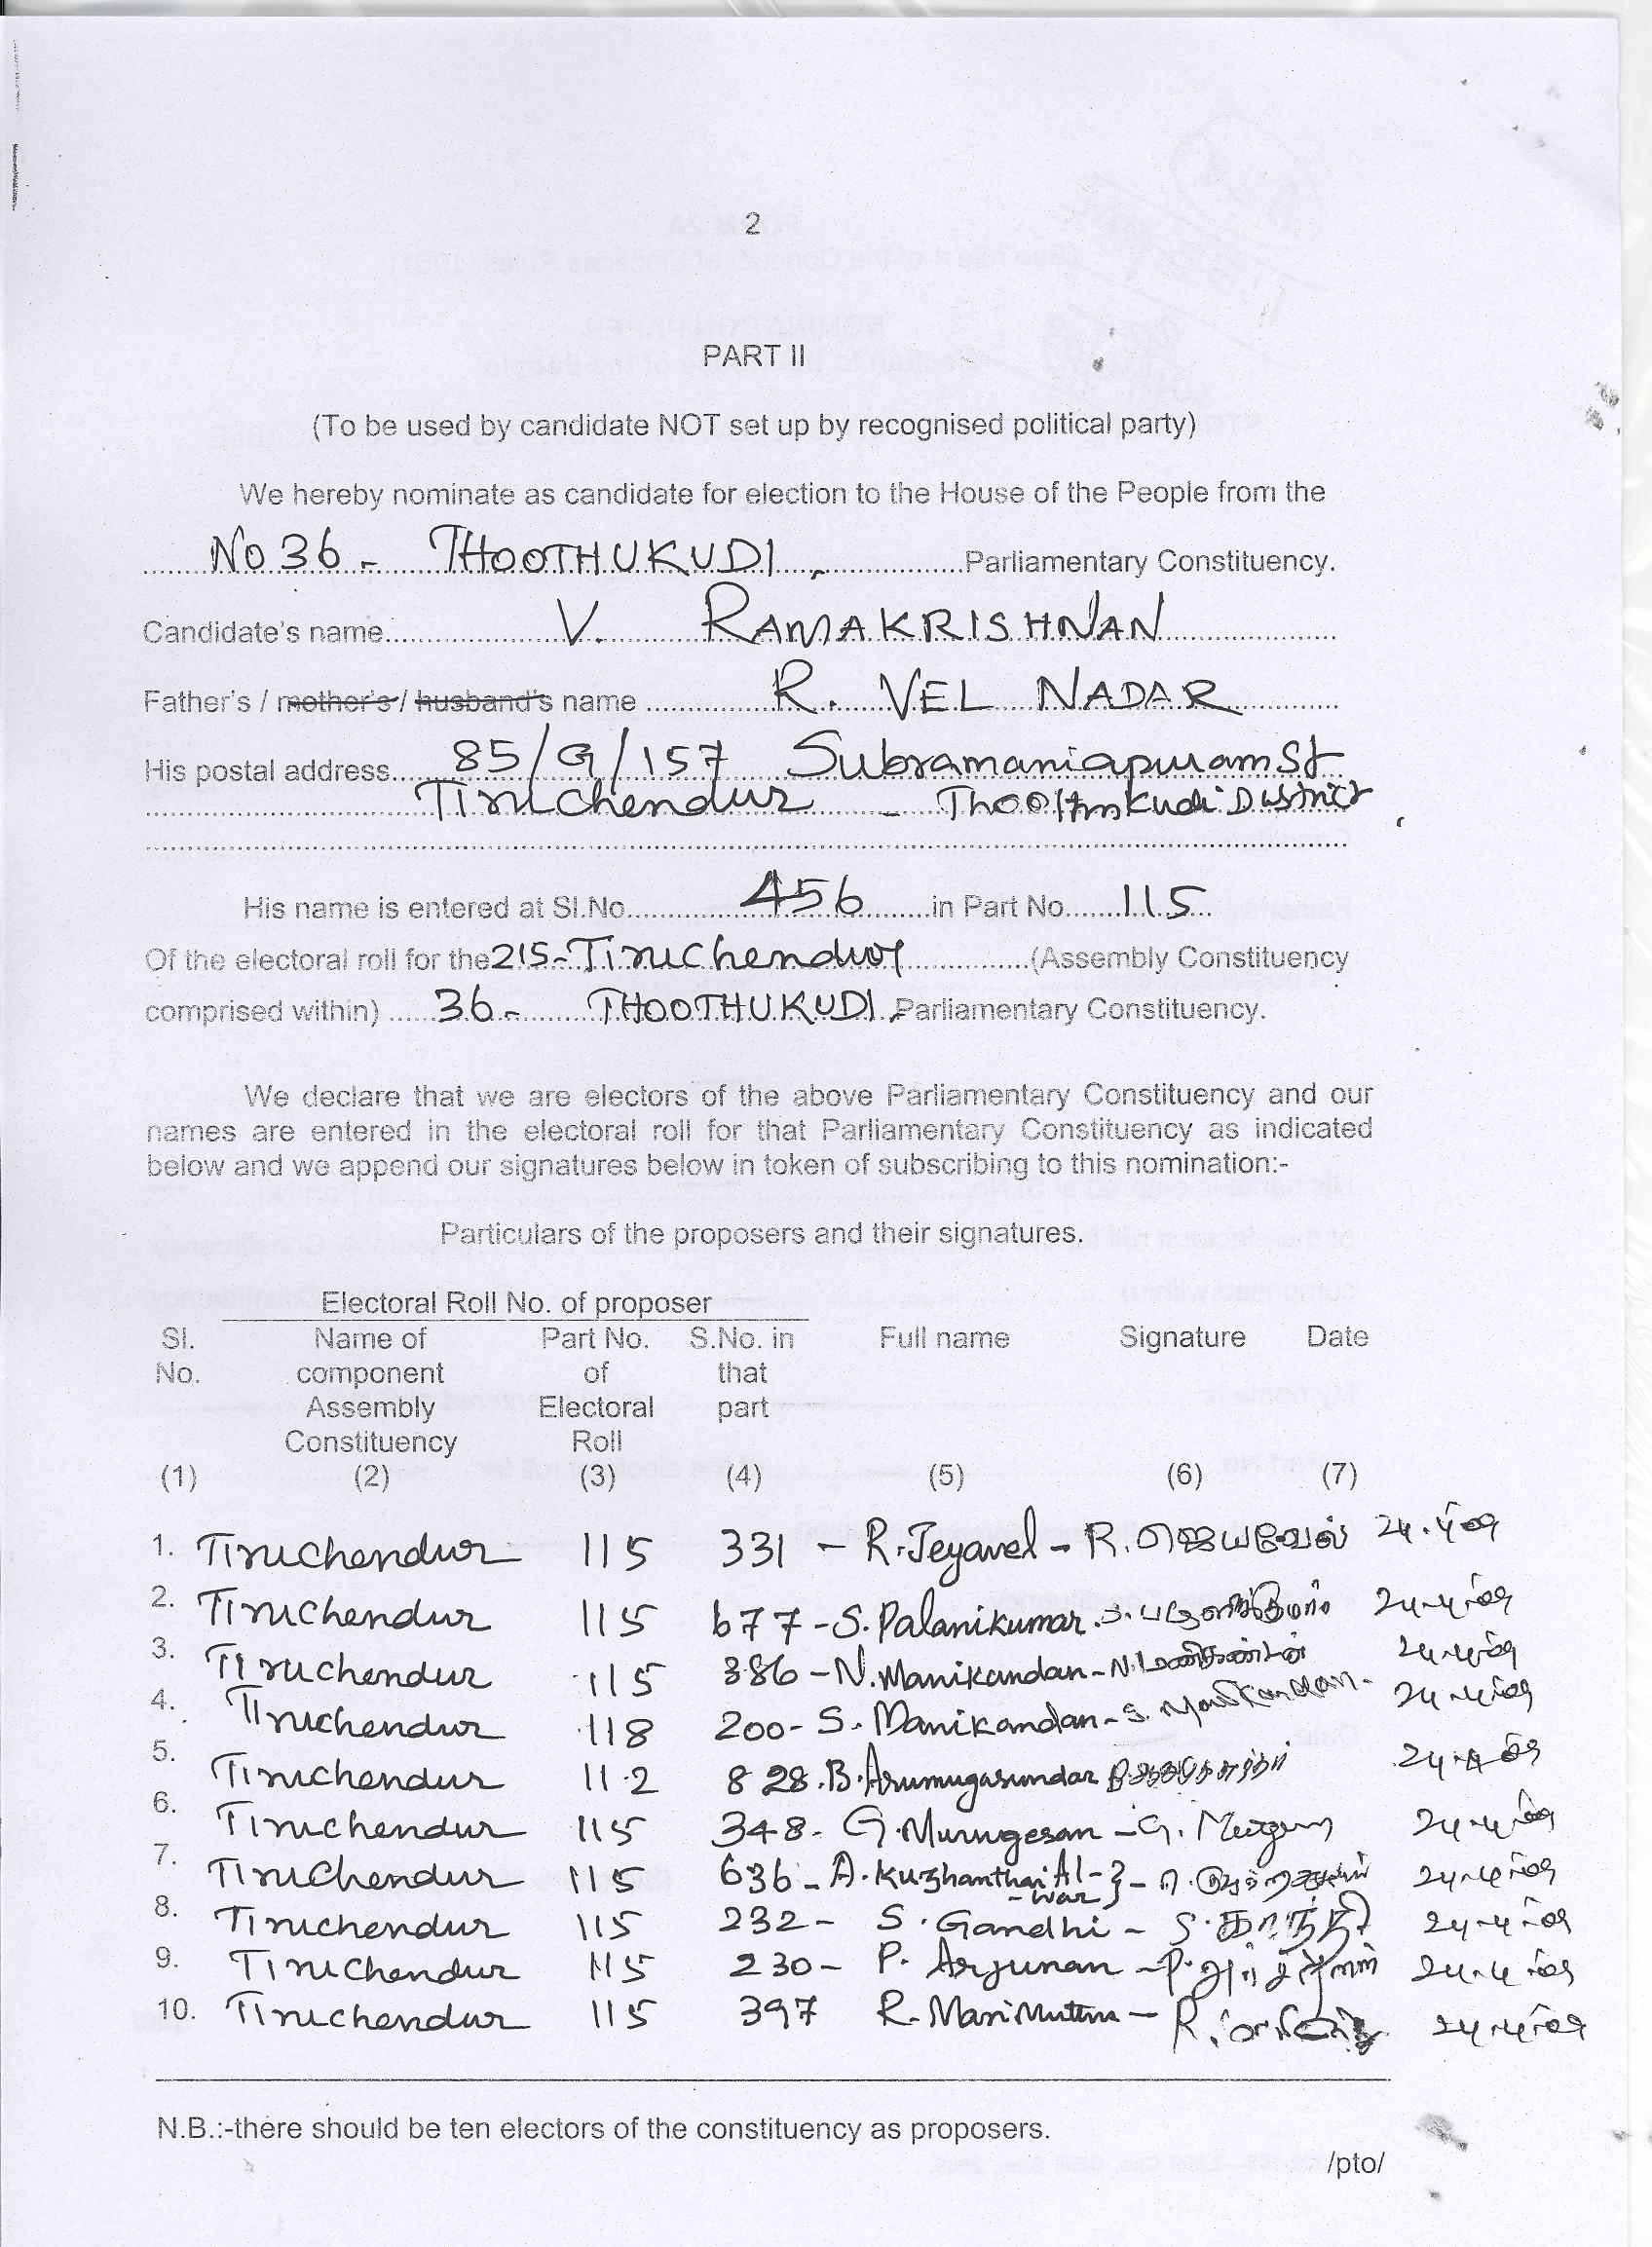 2
PART II
(To be used by candidate NOT set up by recognised political party)
We hereby nominate as candidate for election to the House of the People from the
No 36 - THOOTHUKUDI, Parliamentary Constituency.
Candidate's name V. RAMAKRISHNAN
Father's / mother's / husband's name R. VEL NADAR
His postal address 85/G/157 Subramaniapuram St
Tiruchendur - Thoothukudi District
His name is entered at Sl.No. 456 in Part No. 115
Of the electoral roll for the 215-Tiruchendur (Assembly Constituency
comprised within) 36 - THOOTHUKUDI, Parliamentary Constituency.
We declare that we are electors of the above Parliamentary Constituency and our
names are entered in the electoral roll for that Parliamentary Constituency as indicated
below and we append our signatures below in token of subscribing to this nomination:-
Particulars of the proposers and their signatures.
Electoral Roll No. of proposer
Sl. Name of Part No. S.No. in Full name Signature Date
No. component of that
Assembly Electoral part
Constituency Roll
(1) (2) (3) (4) (5) (6) (7)
1. Tiruchendur 115 331 - R. Jeyavel - R. ஜெயவேல் 24.4.09
2. Tiruchendur 115 677 - S. Palanikumar. 24.4.09
3. Tiruchendur 115 386 - N. Manikandan - N. மணிகண்டன் 24.4.09
4. Tiruchendur 118 200 - S. Manikandan - S. Manikandan. 24.4.09
5. Tiruchendur 112 828. B. Arumugasundar 24.4.09
6. Tiruchendur 115 348. G. Murugesan - G. 24.4.09
7. Tiruchendur 115 636 - A. Kuzhanthai Al- } - 24.4.09
-war
8. Tiruchendur 115 232 - S. Gandhi - S. காந்தி 24.4.09
9. Tiruchendur 115 230 - P. Arjunan - P. அர்ச்சுணன் 24.4.09
10. Tiruchendur 115 397 R. MariMuthu - R. 24.4.09
N.B.:-there should be ten electors of the constituency as proposers.
/pto/